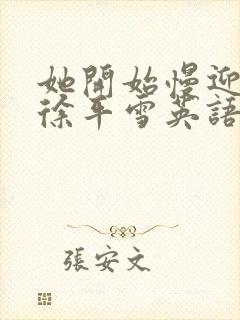 她開始慢迎
徐年雪英語
張安文